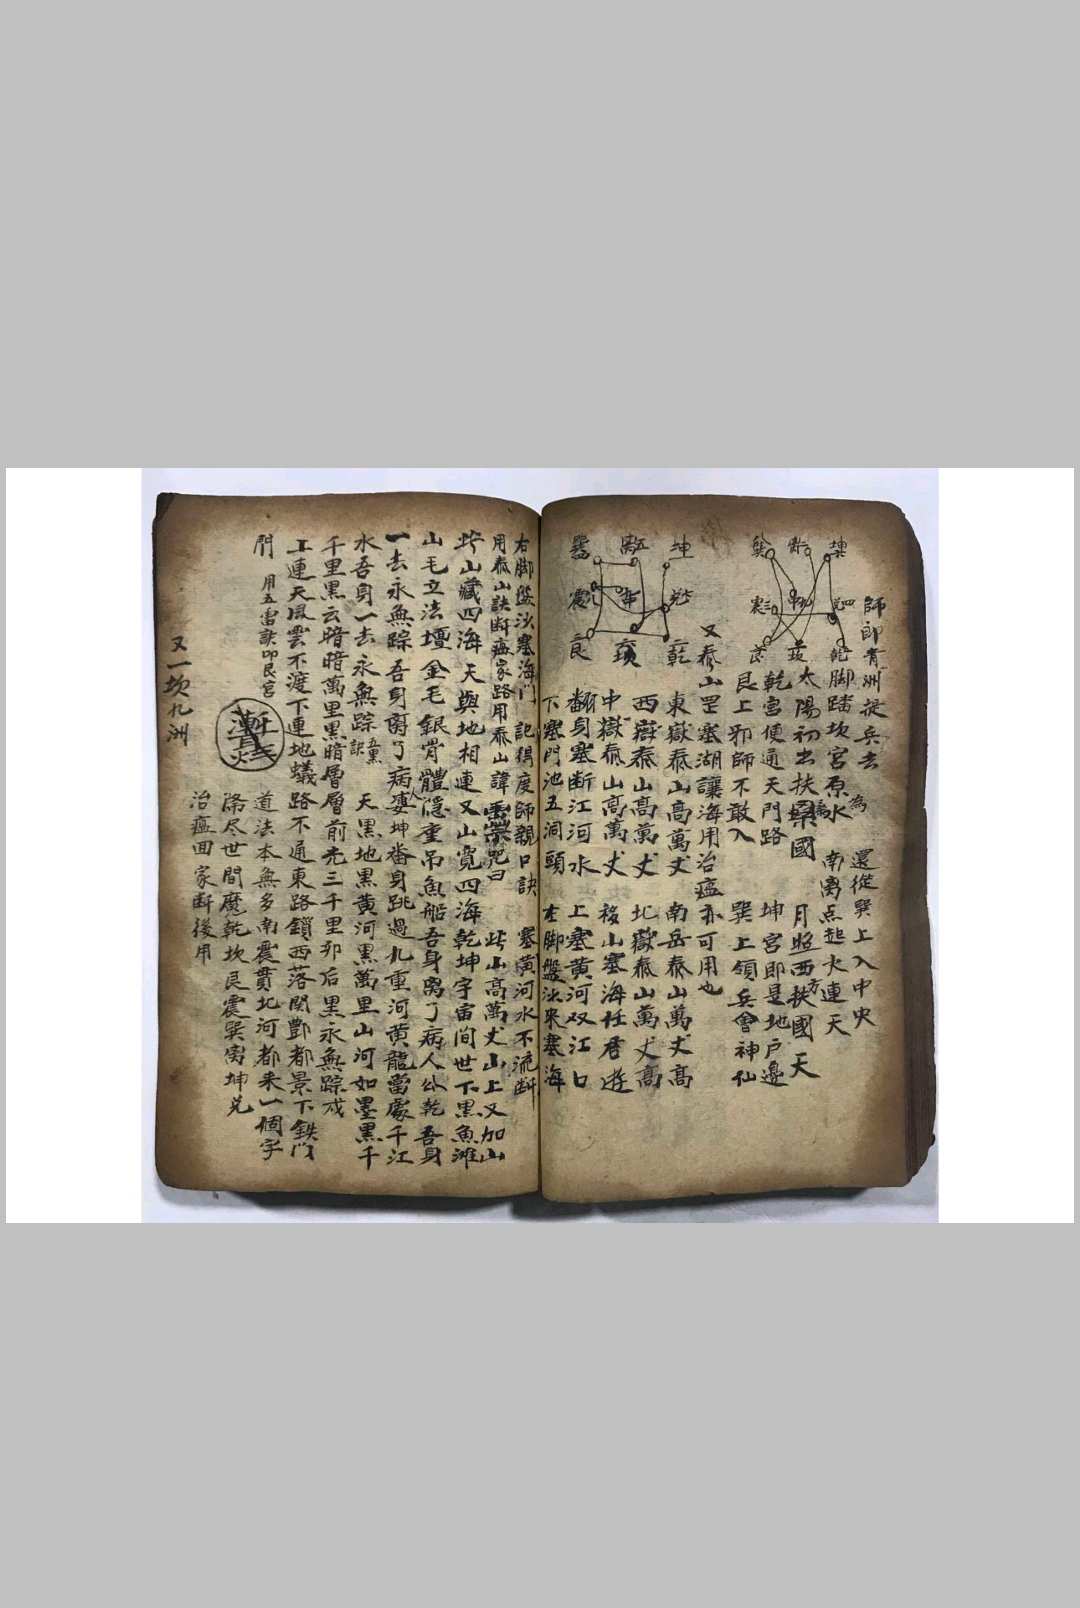 師郎青洲捉兵去 還從巽上入中央
脚踏坎宮為原水 南离点起火連天
太陽初出扶國 月照西方扶國天
乾宮便通天門路 坤宮即是地戶邊
艮上邪師不敢入 巽上領兵會神仙
坤
五
兌七
乾
震三
艮
又泰山罡塞湖讓海用治瘟亦可用也
東嶽泰山高萬丈 南岳泰山萬丈高
西嶽泰山高萬丈 北嶽泰山萬丈高
中嶽泰山高萬丈 移山塞海任君遊
翻身塞断江河水 上塞黃河双江口
下塞門池五洞頭 左脚盤沙來塞海
右脚盤沙塞海門 記得度師親口訣 塞黃河水不流断
用泰山訣断瘟家路用泰山諱 咒曰 此山高萬丈山上又加山
此山藏四海天與地相連又山寬四海乾坤宇宙间世下黑魚滩
山毛立法壇金毛銀骨體隱重吊魚船吾身离了病人公乾吾身
一去永無踪吾身离了病人凄坤畨身跳過九重河黃龍當處千江
水吾身一去永無踪 天黑地黑黃河黑萬里山河如墨黑千
千里黑云暗暗萬里黑暗層層前光三千里邪后黑永無踪戍
上連天風雲不渡下連地蟻路不通東路鎖西落関酆都景下鉄门
門 用五雷訣卬艮宮 道法本無多南震貫北河都来一個字
滌尽世間魔乾坎艮震巽离坤兌
治瘟回家断後用
又一坎九洲